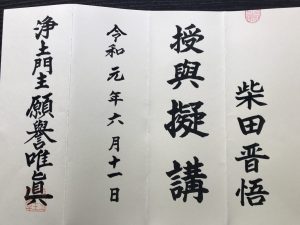 柴田晋悟
授與擬講
令和元年六月十一日
浄土門主願譽唯眞